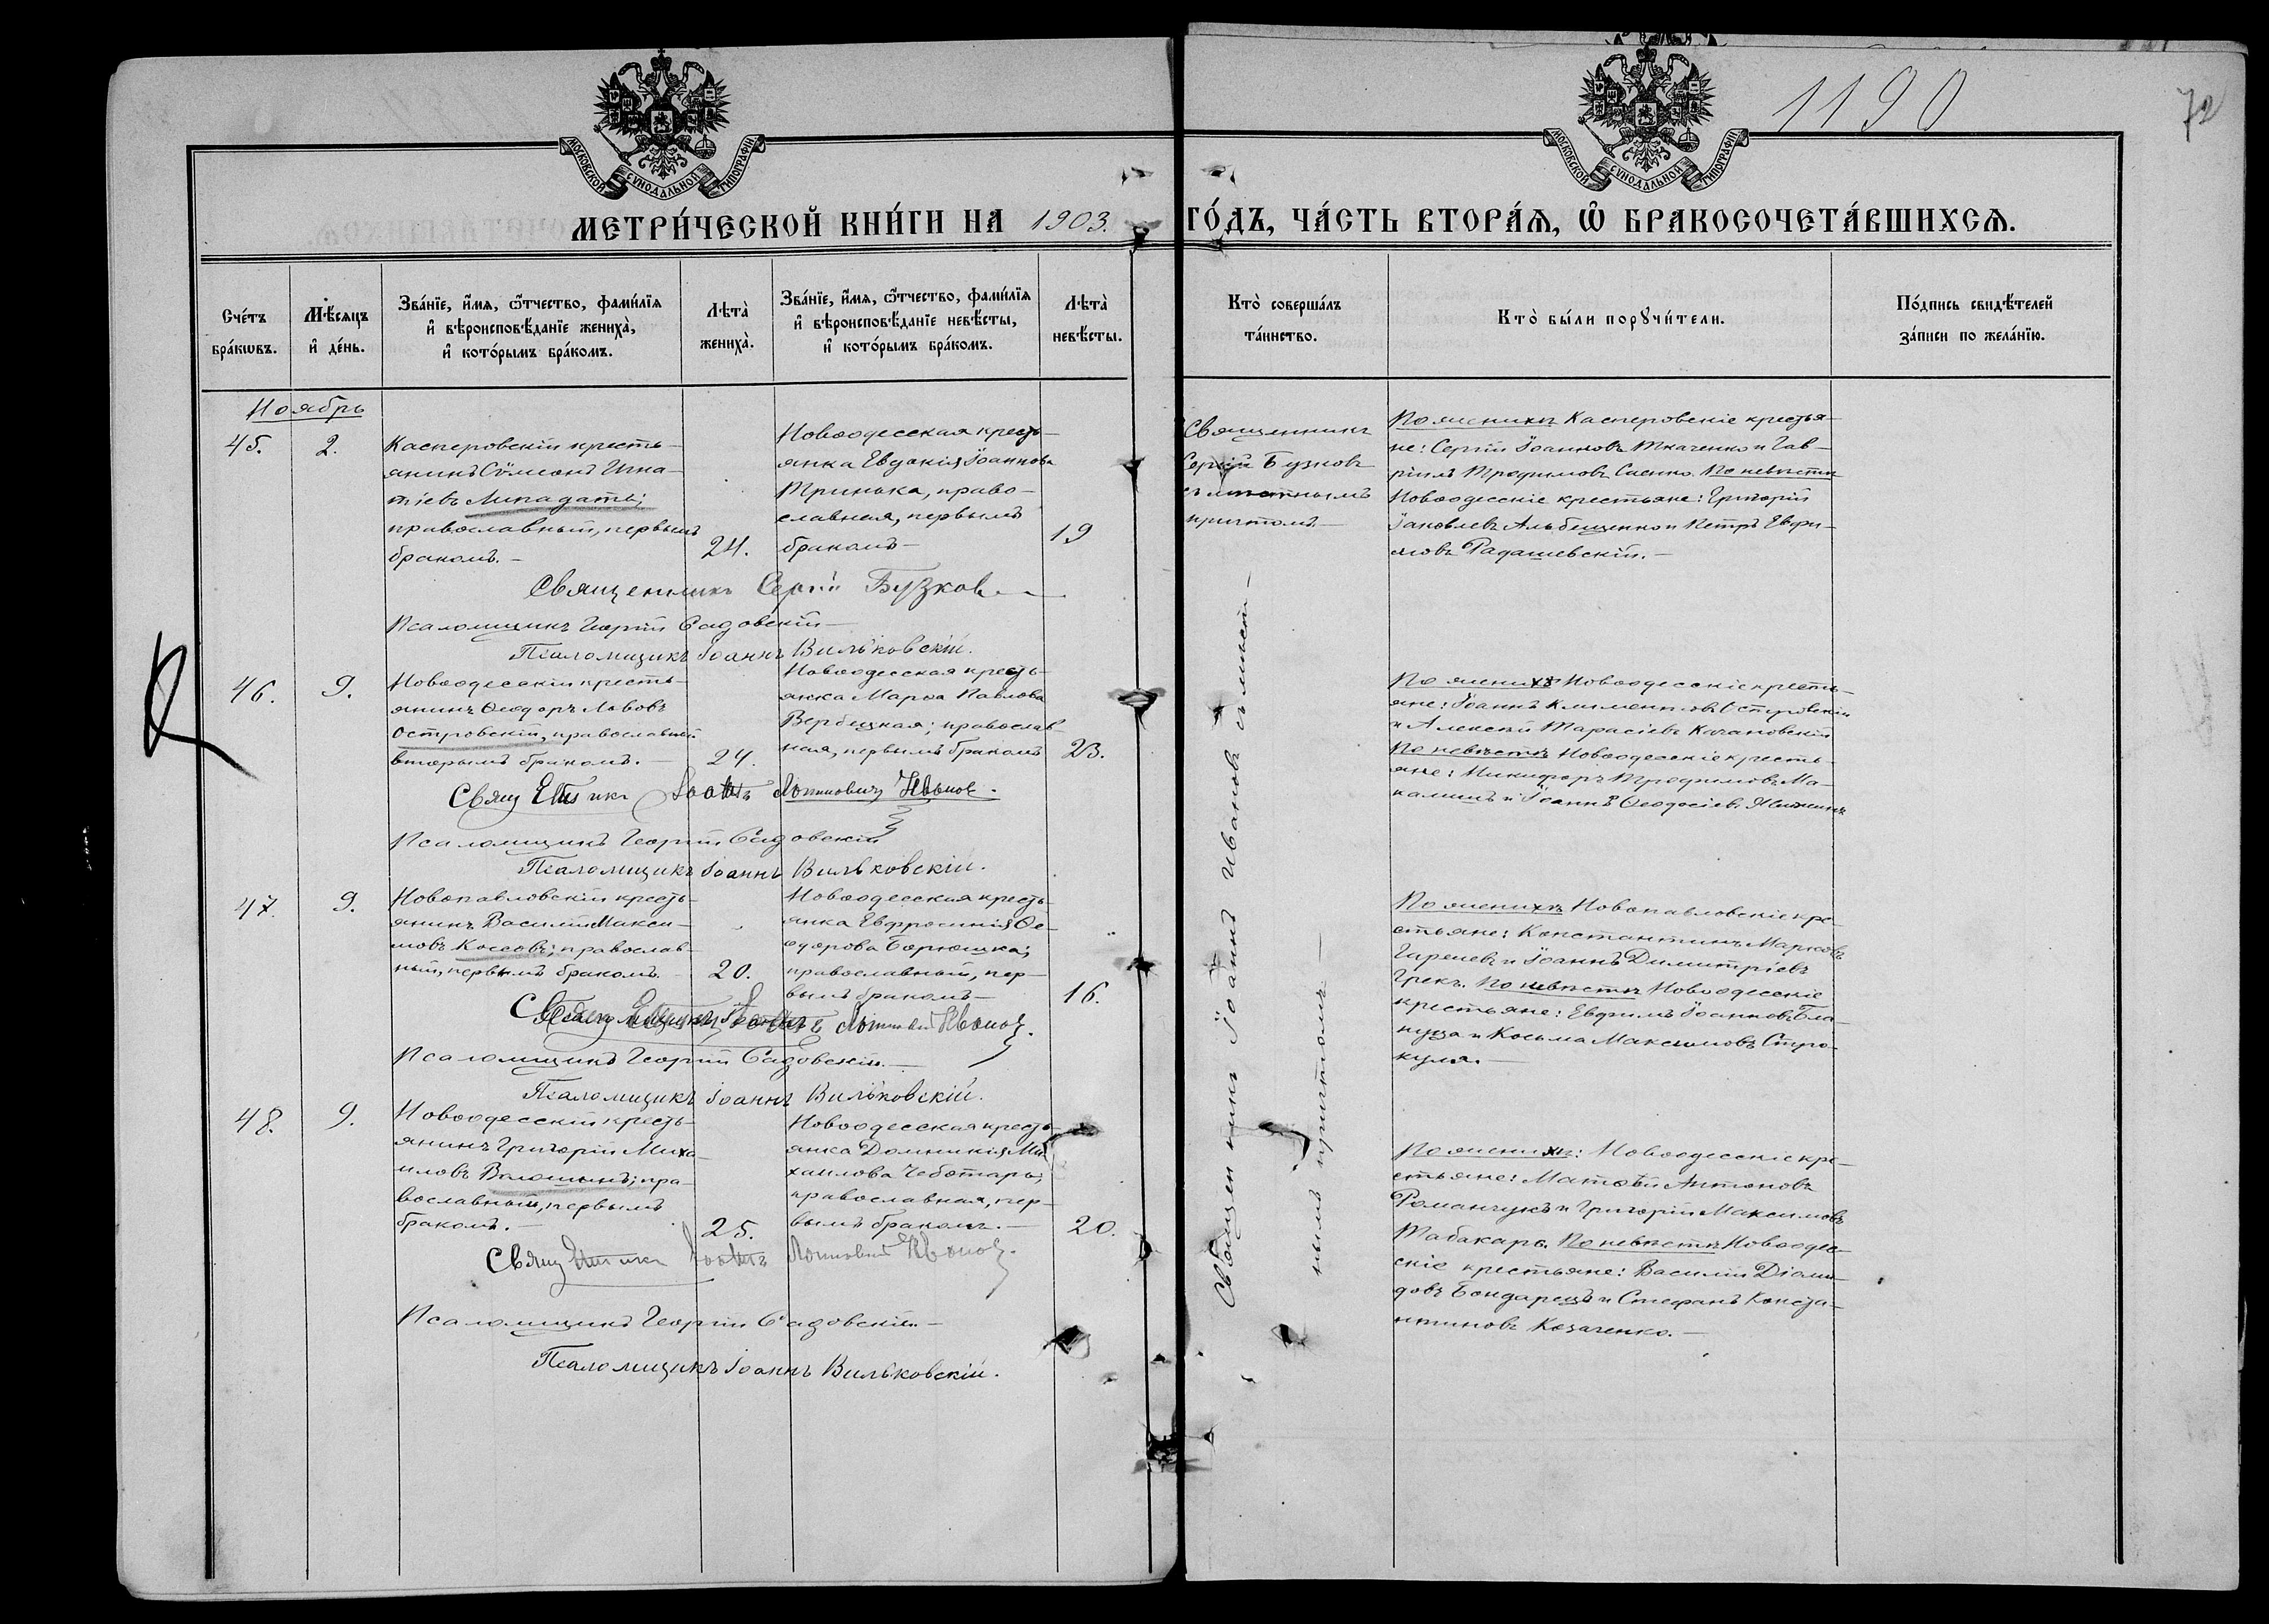 1190
72
МОСКОВСКОЙ СѴНОДАЛЬНОЙ ТИПОГРАФІИ
МОСКОВСКОЙ СѴНОДАЛЬНОЙ ТИПОГРАФІИ
МЕТРИ́ЧЕСКОЙ КНИ́ГИ НА 1903. ГО́ДЪ, ЧА́СТЬ ВТОРА́Я, Ѡ҆ БРАКОСОЧЕТА́ВШИХСѦ.
Сче́тъ
бра́кѡвъ.
Мѣ́сѧцъ
и҆ де́нь.
Зва́нїе, и҆́мѧ, ѻ҆́тчество, фами́лїѧ
и҆ вѣроисповѣ́данїе жениха̀,
и҆ кото́рымъ бра́комъ.
Лѣта̀
жениха̀.
Зва́нїе, и҆́мѧ, ѻ҆́тчество, фами́лїѧ
и҆ вѣроисповѣ́данїе невѣ́сты,
и҆ кото́рымъ бра́комъ.
Лѣта̀
невѣ́сты.
Кто̀ соверша́лъ
та́инство.
Кто̀ бы́ли порꙋчи́тели.
По́дпись свидѣ́телей
за́писи по жела́нїю.
Ноябрь
45.
2.
Касперовскій кресть-
янинъ Сѵмеонъ Игна-
тіевъ Липадатъ;
православный, первымъ
бракомъ.-
24.
Новоодесская кресть-
янка Евдокія Іоаннова
Тринька, право-
славная, первымъ
бракомъ-
19
Священникъ
Сергій Бузковъ
съ мѣстнымъ
причтомъ.-
По женихѣ Касперовскіе крестья-
не: Сергій Іоанновъ Ткаченко и Гав-
ріилъ Трофимовъ Саенко. По невѣстѣ
Новоодесскіе крестьяне: Григорій
Іаковлевъ Альбещенко и Петръ Евфи-
мовъ Радашевскій.-
Священникъ Сергій Бузков
Псаломщикъ Георгій Садовскій-
Псаломщикъ Іоаннъ Вильковскій.
46.
9.
Новоодесскій кресть-
янинъ Ѳеодоръ Львовъ
Островскій, православный
вторымъ бракомъ.-
24.
Новоодесская кресть-
янка Марѳа Павлова
Вербецкая; православ-
ная, первымъ бракомъ
23.
Священникъ Іоаннъ Ивановъ съ мѣст-
нымъ причтомъ-
По женихѣ Новоодесскіе кресть-
яне: Іоаннъ Климентовъ Островскій
и Алексій Тарасіевъ Качановскій
По невѣстѣ Новоодесскіе кресть-
яне: Никифоръ Трофимовъ Ма-
и Іоаннъ Ѳеодосіевъ
Священникъ Іоаннъ Ивановъ.
Псаломщикъ Георгій Садовскій
Псаломщикъ Іоаннъ Вильковскій.
47.
9.
Новопавловскій кресть-
янинъ Василій Макси-
мовъ Коссовъ; православ-
ный, первымъ бракомъ.-
20.
Новоодесская кресть-
янка Евфросинія Ѳе-
одорова Борюшка;
православный, пер-
вымъ бракомъ-
16.
По женихѣ Новопавловскіе кре-
стьяне: Константинъ Марковъ
и Іоаннъ Димитріевъ
Грекъ. По невѣстѣ Новоодесскіе
крестьяне: Евфимъ Іоанновъ Бла-
и Косьма Максимовъ Стро-
куля.-
Іоаннъ Ивановъ.
Псаломщикъ Георгій Садовскій.-
Псаломщикъ Іоаннъ Вильковскій.
48.
9.
Новоодесскій кресть-
янинъ Григорій Миха-
иловъ Волошинъ; пра-
вославный, первымъ
бракомъ.-
25.
Новоодесская кресть-
янка Домникія Ми-
хаилова Чеботарь;
православная, пер-
вымъ бракомъ.-
20.
По женихѣ: Новоодесскіе кре-
стьяне: Матѳей Антоновъ
Романчукъ и Григорій Максимовъ
Табакарь. По невѣстѣ Новоодес-
скіе крестьяне: Василій Діоми-
довъ Бондарецъ и Стефанъ Конста-
нтиновъ Козаченко.-
Священникъ Іоаннъ Ивановъ.
Псаломщикъ Георгій Садовскій.-
Псаломщикъ Іоаннъ Вильковскій.